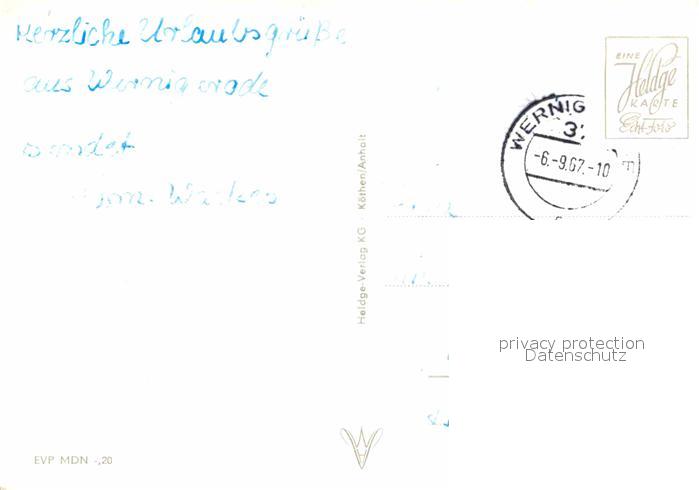 Herzliche Urlaubsgrüße
aus Wernigerode
sendet
Fam.
EINE
Heldge
KARTE
Echt-Foto
WERNIG E
-6.-9.67.-10
Heldge-Verlag KG · Köthen/Anhalt
privacy protection
Datenschutz
EVP MDN -,20